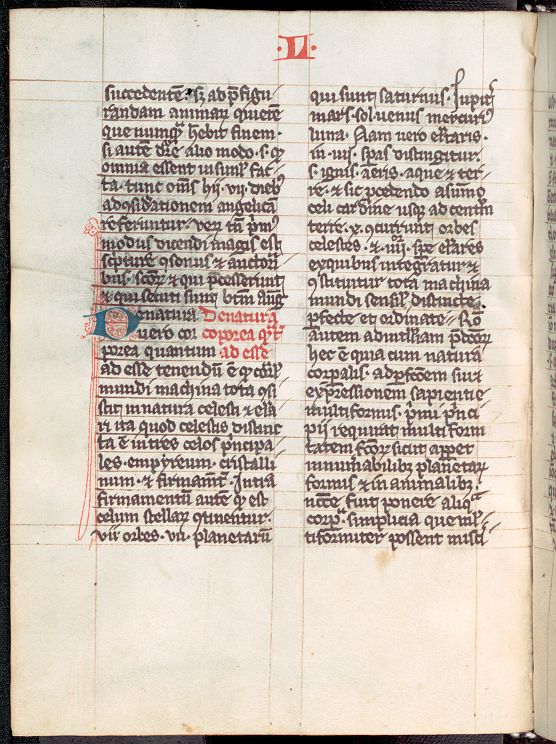 L
succedente. sʒ ad p̄figu
randam animaꝝ quietē
que nunqᷓ hēbit finem.
si autē dr̄e alio modo. s. ꝙ
omnia essent insimul fac
ta. tunc om̄s hii. vii. dieb᷒
ad ↄsidationem angelicā
referuntur. veꝝ tn̄ p̄m᷒
modus dicendi magis est
scpture ↄsonus & auctori
bus. scoꝝ & qui p̄cesserunt
& qui secuti sunt btm̄ aug
De natura De natura
vero cor corporea qᷓtū
porea quantum ad esse
ad esse tenendū ē ꝙ corꝑˡ
mundi machina tota ↄsi
stit in natura celesti & ele
ri ita quod celestis distinc
ta ē in tres celos p̄ncipa
les. empyreum. cristalli
num. & firmamt̄. Intra
firmamentū autē qᵈ est
celum stellaꝝ ↄtinentur.
vii orbes. vii. planetarū
qui sunt saturnus. Iupit̄
mars. sol. venus mercuri᷒
luna. Nam vero el'taris.
in. iiii. spas distinguitur.
s. ignis. aeris. aque & ter
re. & sic ꝓcedendo a sum̄o
celi cardine usqꝫ ad centꝝ
terre. x. ↄcurrunt orbes
celestes. & iiii. spe el'ares
ex quibus integratur &
ↄstituitur tota machina
mundi sensil' distincte.
ꝑfecte et ordinate. Rō
autem ad intll'am p̄dcoꝝ
hec ē quia cum natura
corpalis. ad ꝑfcōem sui &
exp̄ssionem sapientie
multiformis. p̄mi p̄nci
pii requirat multiform
tatem fcōꝝ sicut appet
in nūnabilibꝫ planetaꝝ
formis & in animalibꝫ
ncc̄e fuit ponere aliqᷓ
corpᵃ. simplicia que ml'
tiformiter possent misci